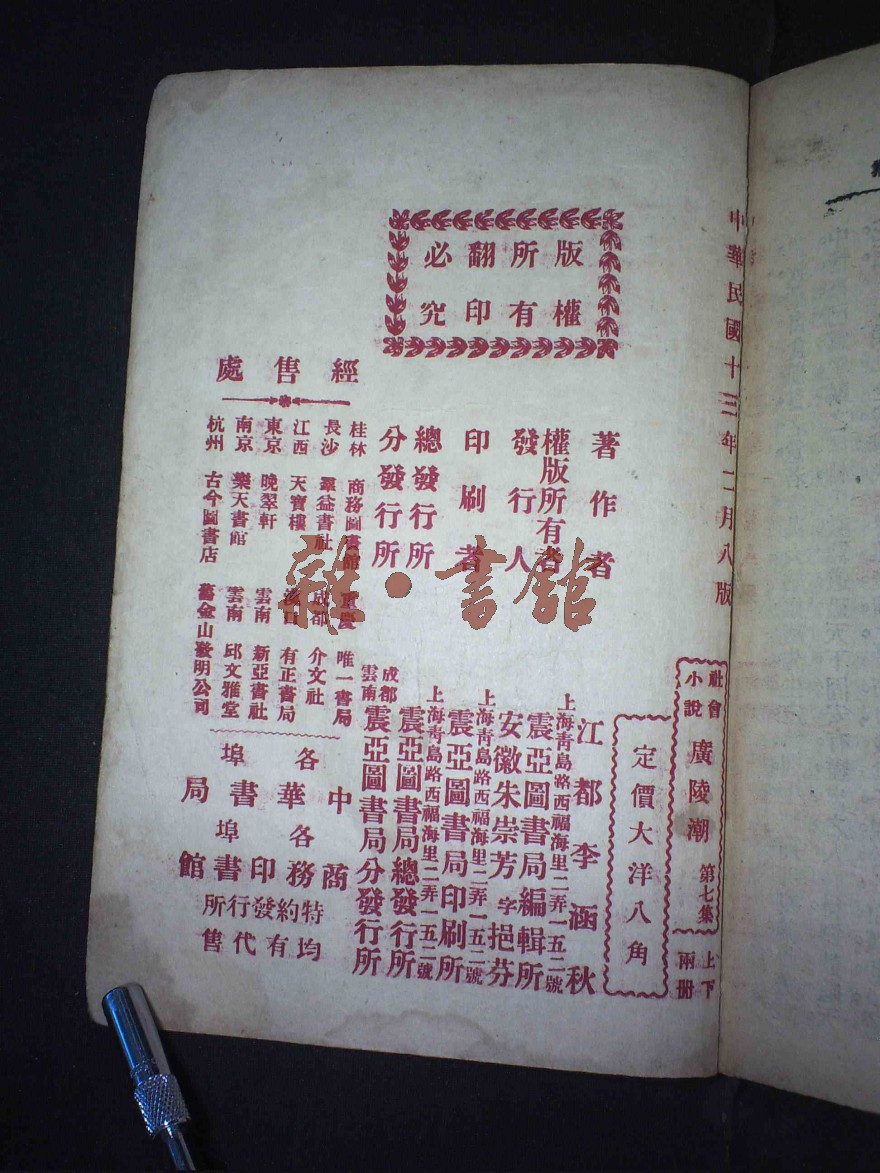 中華民國十三年二月八版
社會小說 廣陵潮 第七集 上下兩冊
定價大洋八角
版權
所有
翻印
必究
著作者 江都李涵秋
權版所有者 上海青島路西福海里二弄一五二號 震亞圖書局編輯所
發行人 安徽朱崇芳字挹芬
印刷者 上海青島路西福海里二弄一五二號 震亞圖書局印刷所
總發行所 上海青島路西福海里二弄一五二號 震亞圖書局總發行所
分發行所 成都雲南 震亞圖書局分發行所
經售處
桂林 商務圖書館 重慶 唯一書局
長沙 羣益書社 成都 介文社
江西 天寶樓 漢口 有正書局
東京 晚翠軒 雲南 新亞書社
南京 樂天書館 雲南 邱文雅堂
杭州 古今圖書店 舊金山發明公司
各埠中華書局
各埠商務印書館
均特約發行所
有代售
雜·書館